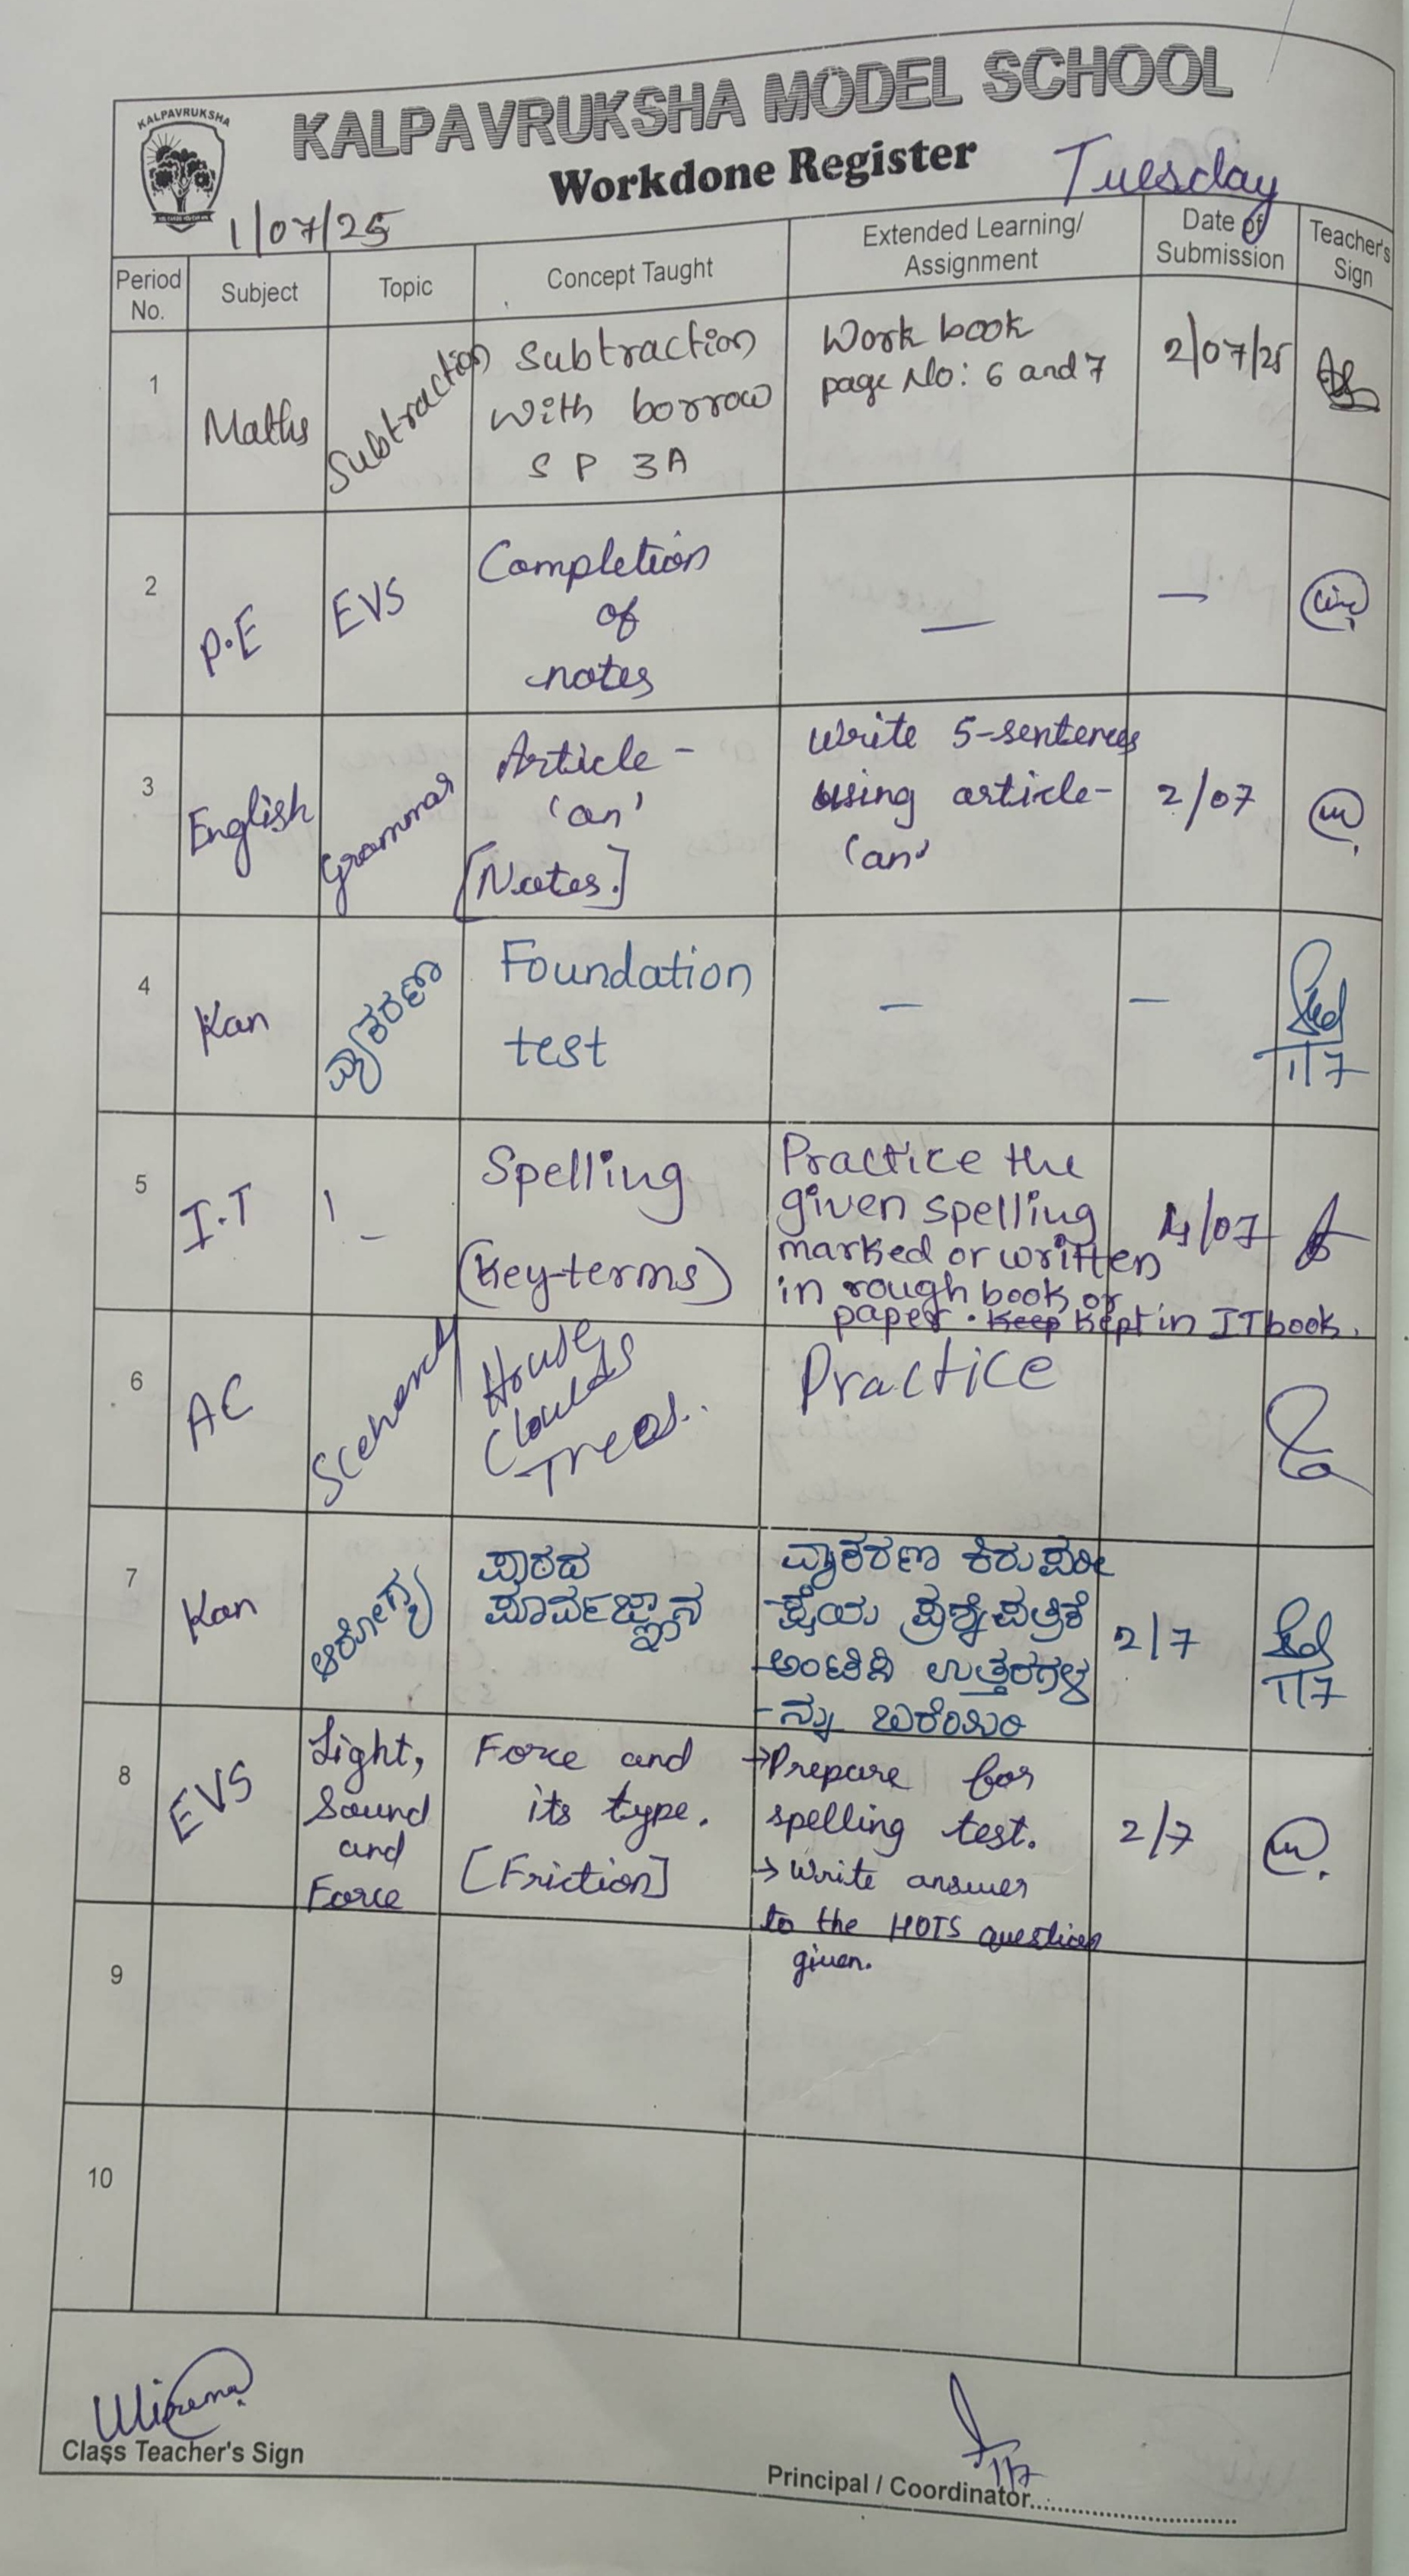 KALPAVRUKSHA
KALPAVRUKSHA MODEL SCHOOL
Workdone Register
Tuesday
1/07/25
Period No.
Subject
Topic
Concept Taught
Extended Learning/
Assignment
Date of
Submission
Teacher's
Sign
1
Maths
Subtraction
Subtraction
with borrow
S P 3A
Work book
page No: 6 and 7
2/07/25
2
P.E
EVS
Completion
of
notes
—
—
3
English
Grammar
Article -
'an'
[Notes.]
Write 5-sentences
using article-
'an'
2/07
4
Kan
ವ್ಯಾಕರಣ
Foundation
test
—
—
1/7
5
I.T
1
-
Spelling
(Key-terms)
Practice the
given spelling
marked or written
in rough book or
paper. Keep Kept in IT book.
4/07
6
AC
Scenery
House
Clouds
Trees..
Practice
7
Kan
ಆರೋಗ್ಯ
ಪಾಠದ
ಪೂರ್ವಜ್ಞಾನ
ವ್ಯಾಕರಣ ಕಿರುಪರೀ
-ಕ್ಷೆಯ ಪ್ರಶ್ನೆಪತ್ರಿಕೆ
ಅಂಟಿಸಿ ಉತ್ತರಗಳ
-ನ್ನು ಬರೆಯಿರಿ
2/7
1/7
8
EVS
Light,
Sound
and
Force
Force and
its type.
[Friction]
→Prepare for
spelling test.
→ Write answer
to the HOTS question
given.
2/7
9
10
Class Teacher's Sign
1/7
Principal / Coordinator